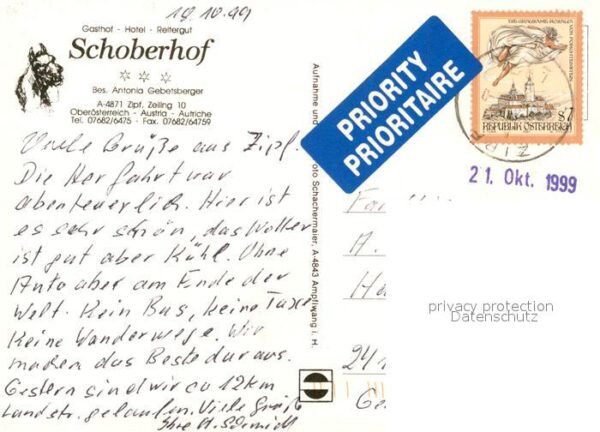 19.10.99
Gasthof - Hotel - Reitergut
Schoberhof
Bes. Antonia Gebetsberger
A-4871 Zipf, Zeiling 10
Oberösterreich - Austria - Autriche
Tel. 07682/6475 - Fax. 07682/64759
Viele Grüße aus Zipf.
Die Herfahrt war
abenteuerlich. Hier ist
es sehr schön, das Wetter
ist gut aber Kühl. Ohne
Auto aber am Ende der
Welt. Kein Bus, keine Taxe
Keine Wanderwege. Wir
machen das Beste daraus.
Gestern sind wir ca 12km
Landstr. gelaufen. Viele Grüße
Ihre H. Schmidt
Aufnahme und Foto Schachermaier, A-4843 Ampflwang i. H.
PRIORITY
PRIORITAIRE
S7
REPUBLIK ÖSTERREICH
21. Okt. 1999
Fa
A.
Ha
241
Ge
privacy protection
Datenschutz